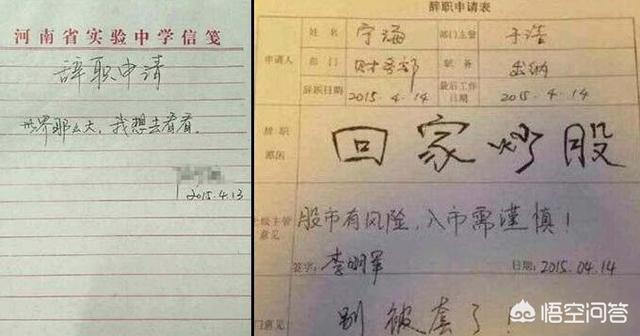 河南省实验中学信笺
辞职申请
世界那么大，我想去看看。
2015.4.13
辞职申请表
申请人
姓名 宁海 部门主管 于浩
部门 财务部 职务 出纳
辞职日期 2015.4.14 最后工作日期 2015.4.14
辞职原因 回家炒股
主管意见 股市有风险，入市需谨慎！
签字：李明军 日期：2015.04.14
门意见 别被套了
悟空问答